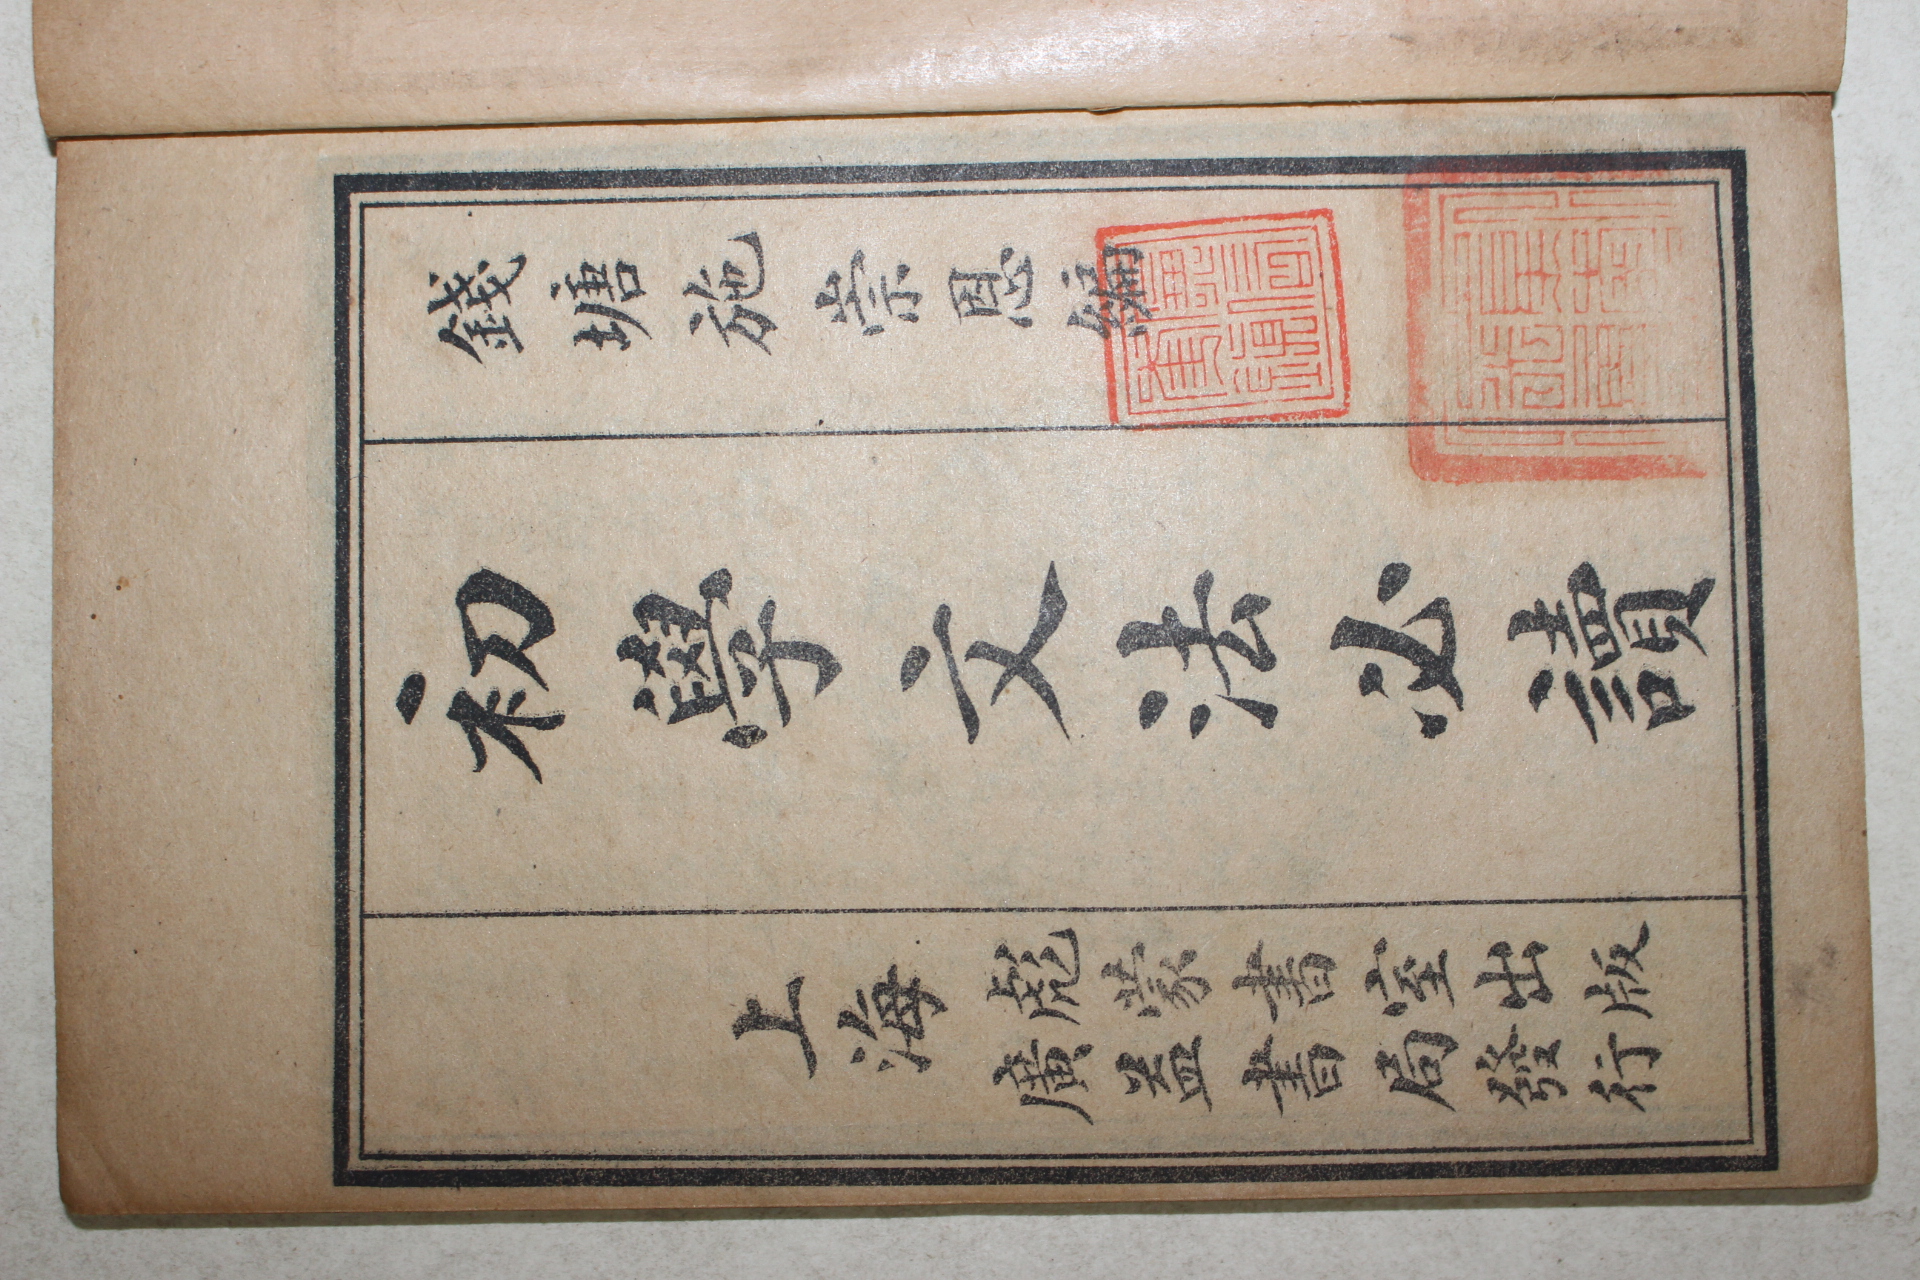 錢塘施崇恩編
初學文法必讀
上海
彪蒙書室出版
廣益書局發行